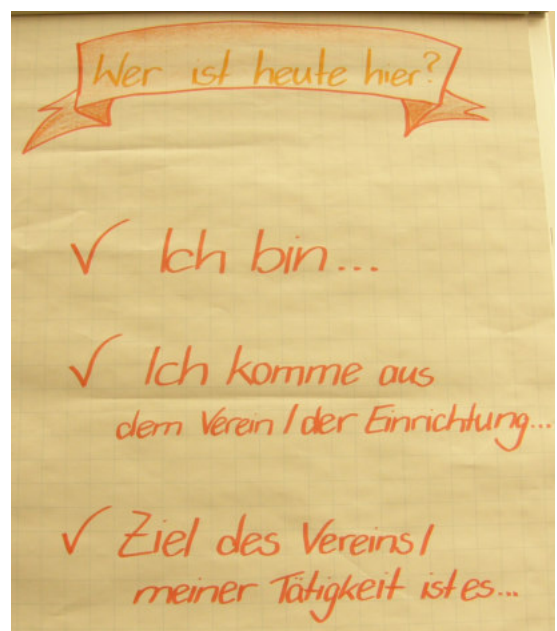 Wer ist heute hier?
✓ Ich bin...
✓ Ich komme aus
dem Verein / der Einrichtung...
✓ Ziel des Vereins /
meiner Tätigkeit ist es...